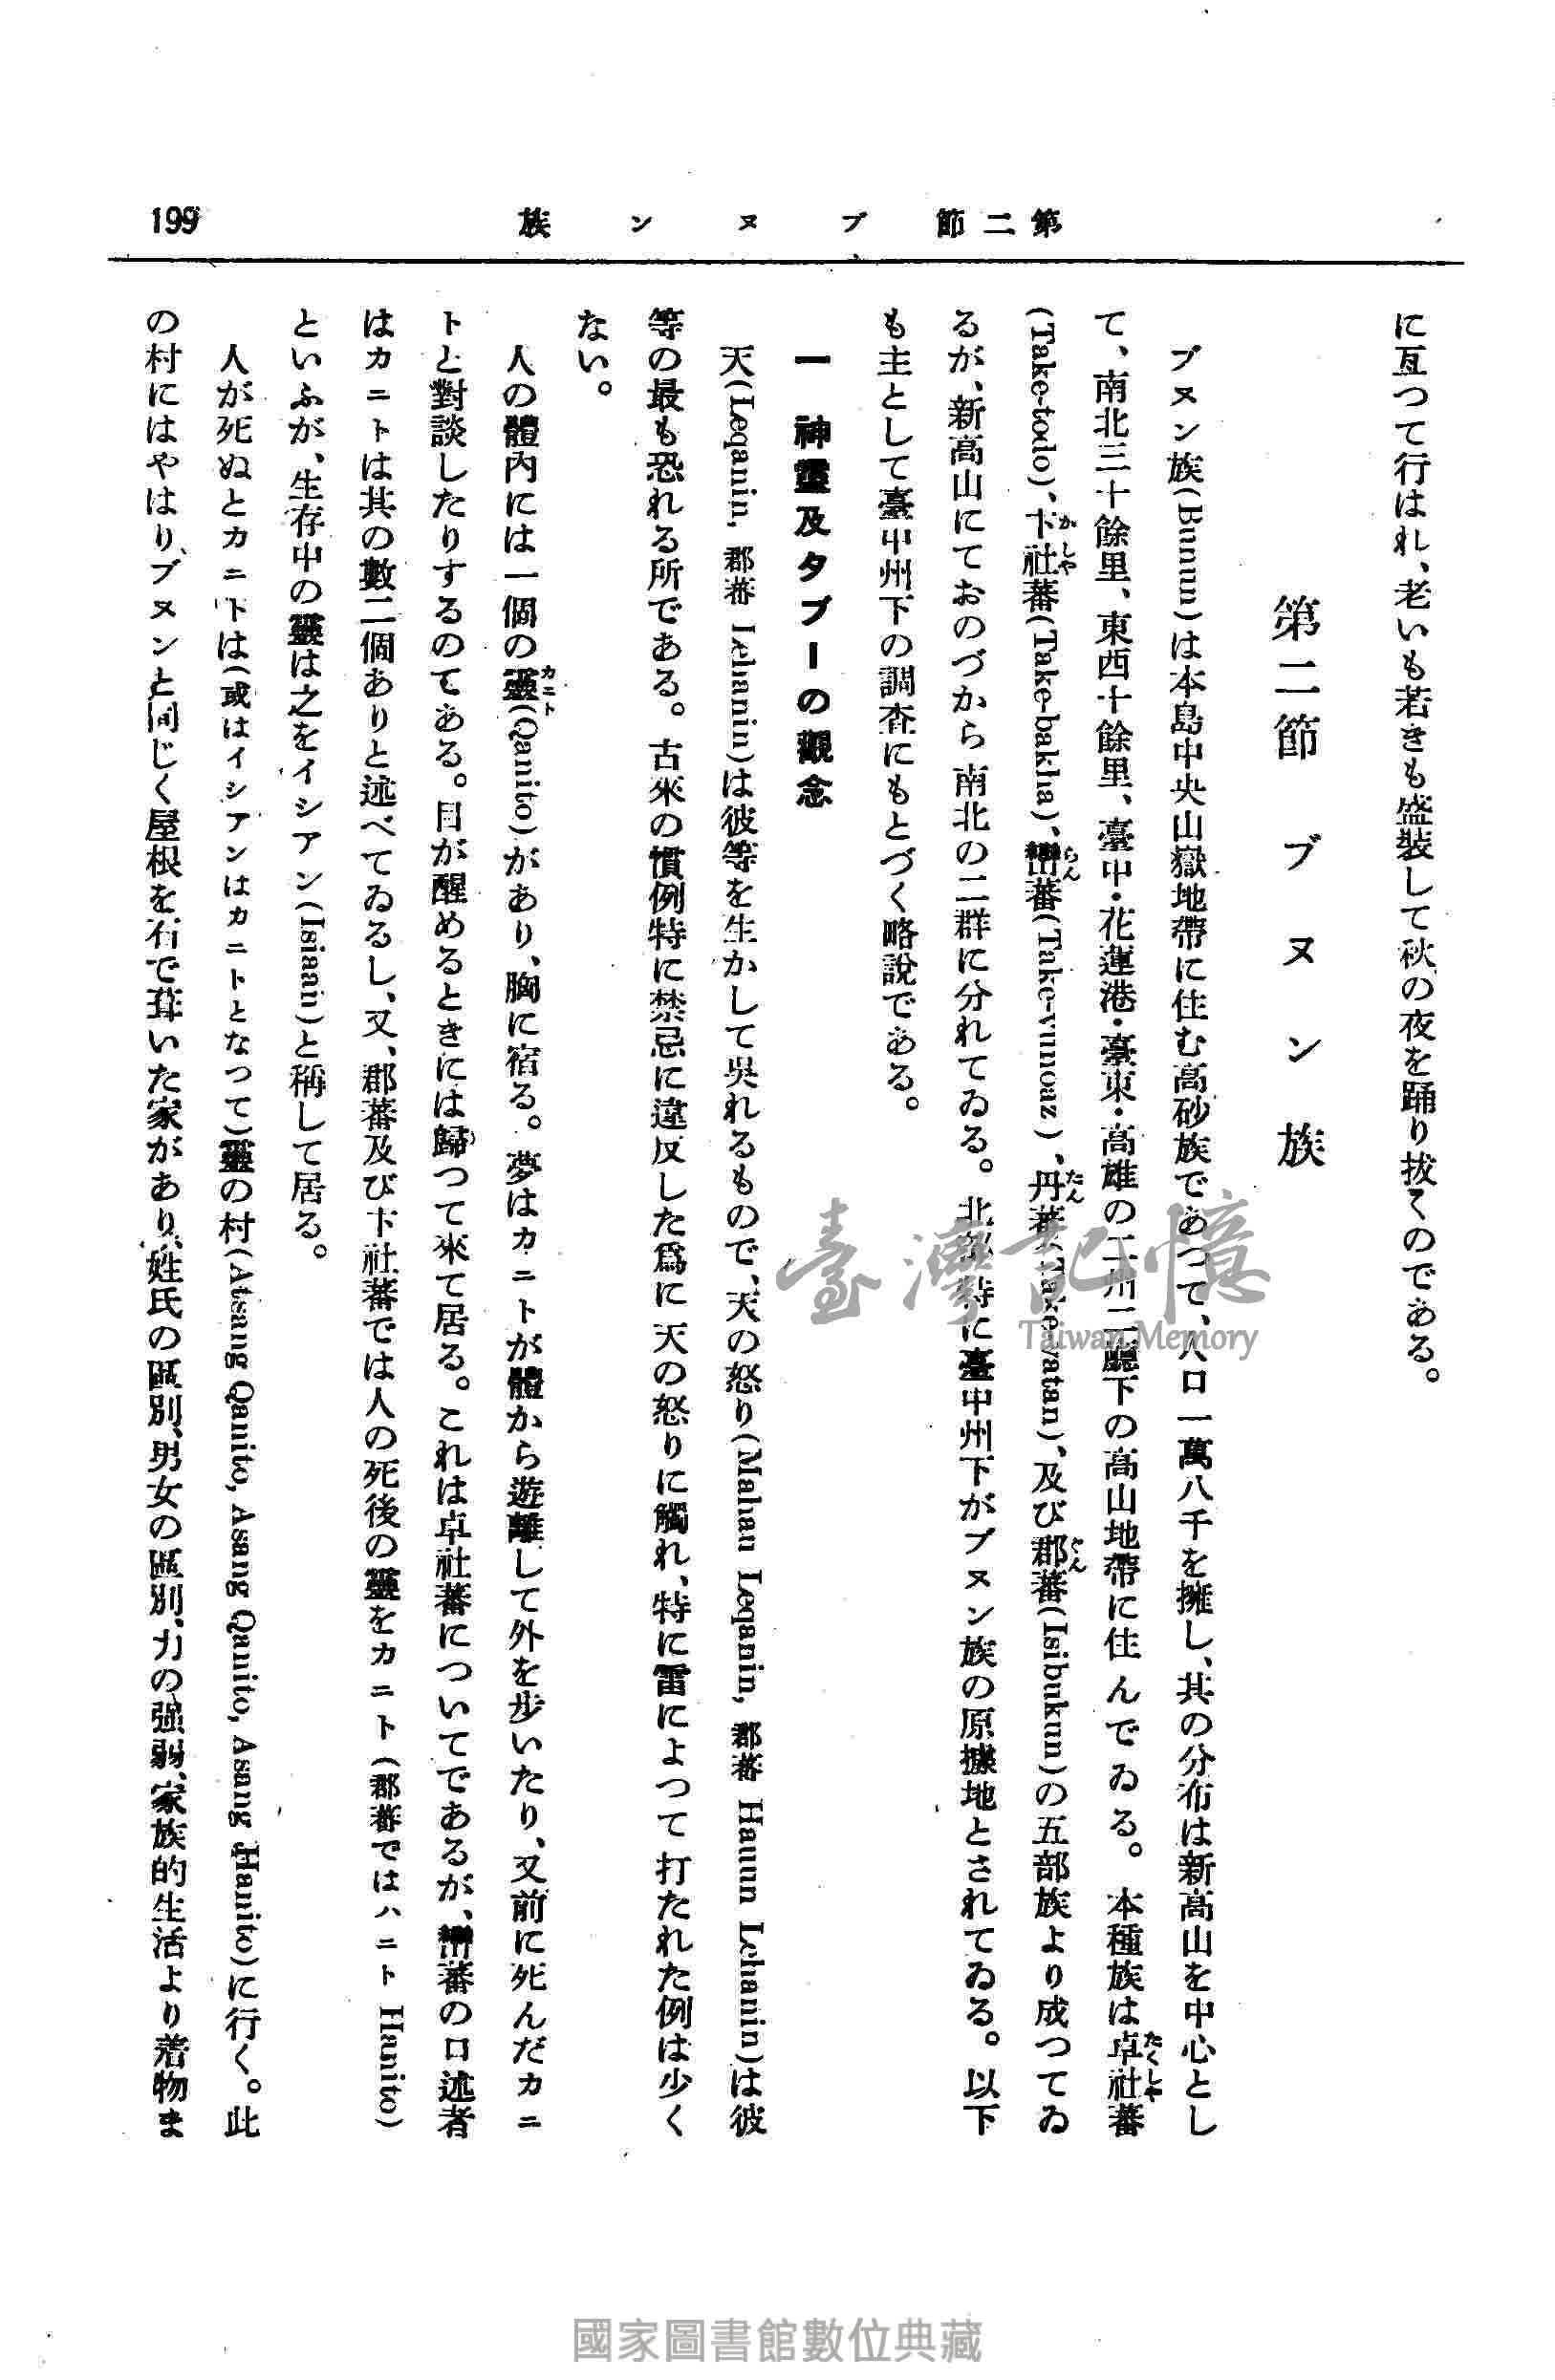 199
第二節　ブヌン族
に亙つて行はれ、老いも若きも盛裝して秋の夜を踊り拔くのである。
第二節　ブヌン族
ブヌン族(Bunun)は本島中央山嶽地帶に住む高砂族であつて、人口一萬八千を擁し、其の分布は新高山を中心とし
て、南北三十餘里、東西十餘里、臺中・花蓮港・臺東・高雄の二州二廳下の高山地帶に住んでゐる。本種族は卓社蕃
(Take-todo)、卡社蕃(Take-bakha)、巒蕃(Take-vunoaz)、丹蕃(Take-vatan)、及び郡蕃(Isibukun)の五部族より成つてゐ
るが、新高山にておのづから南北の二群に分れてゐる。北部特に臺中州下がブヌン族の原據地とされてゐる。以下
も主として臺中州下の調査にもとづく略說である。
一　神靈及タブーの觀念
天(Leqanin, 郡蕃 Lehanin)は彼等を生かして吳れるもので、天の怒り(Mahau Leqanin, 郡蕃 Hauun Lehanin)は彼
等の最も恐れる所である。古來の慣例特に禁忌に違反した爲に天の怒りに觸れ、特に雷によつて打たれた例は少く
ない。
人の體內には一個の靈(Qanito)があり、胸に宿る。夢はカニトが體から遊離して外を步いたり、又前に死んだカニ
トと對談したりするのである。目が醒めるときには歸つて來て居る。これは卓社蕃についてであるが、巒蕃の口述者
はカニトは其の數二個ありと述べてゐるし、又、郡蕃及び卡社蕃では人の死後の靈をカニト(郡蕃ではハニト Hanito)
といふが、生存中の靈は之をイシアン(Isiaan)と稱して居る。
人が死ぬとカニトは(或はイシアンはカニトとなつて)靈の村(Atsang Qanito, Asang Qanito, Asang Hanito)に行く。此
の村にはやはり、ブヌンと同じく屋根を石で葺いた家があり、姓氏の區別、男女の區別、力の强弱、家族的生活より着物ま
臺灣記憶
Taiwan Memory
國家圖書館數位典藏